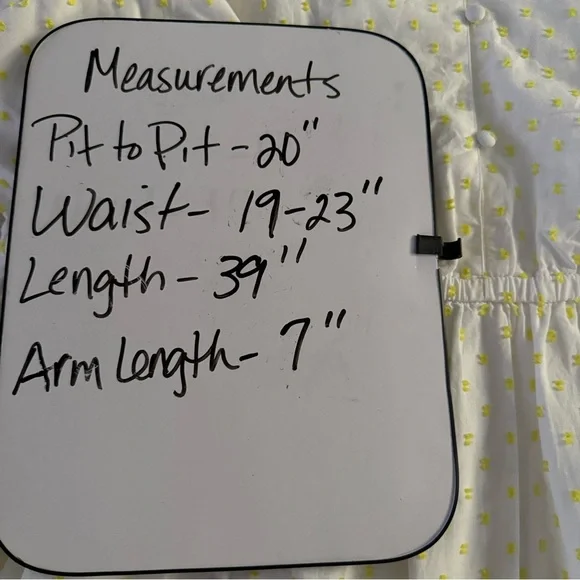 Measurements
Pit to Pit - 20"
Waist - 19-23"
Length - 39"
Arm Length - 7"